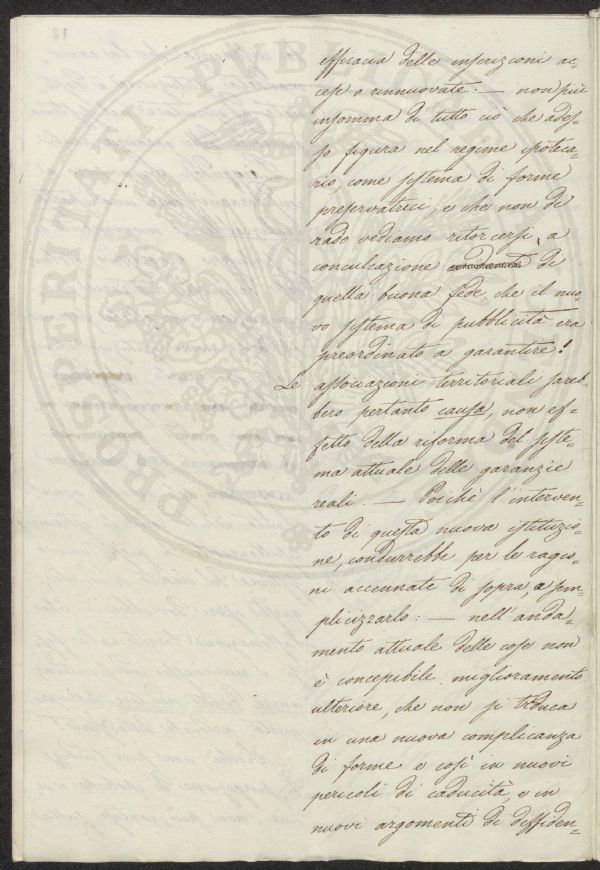 efficacia delle inscrizioni ac=
cese o rinnuovate: — non più
insomma di tutto ciò che ades=
so figura nel regime ipoteca=
rio come sistema di forme
preservatrici, e che non di
rado vediamo ritorcersi, a
conculcazione di
quella buona fede, che il nuo=
vo sistema di pubblicità era
preordinato a garantire!
Le associazioni territoriali sareb=
bero pertanto causa, non ef=
fetto della riforma del siste=
ma attuale delle garanzie
reali. — Poichè l'interven=
to di questa nuova istituzio=
ne, condurrebbe per le ragio=
ni accennate di sopra, a sem=
plicizzarlo: — nell'anda=
mento attuale delle cose non
è concepibile miglioramento
ulteriore, che non si traduca
in una nuova complicanza
di forme e così in nuovi
pericoli di caducità, e in
nuovi argomenti di diffiden=
PROSPERITATI PUBLICAE